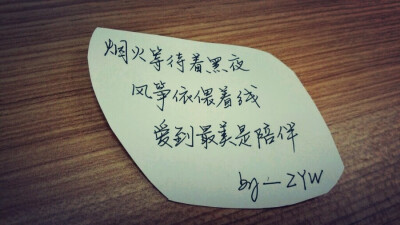 烟火等待着黑夜
风筝依偎着线
爱到最美是陪伴
by—ZYW